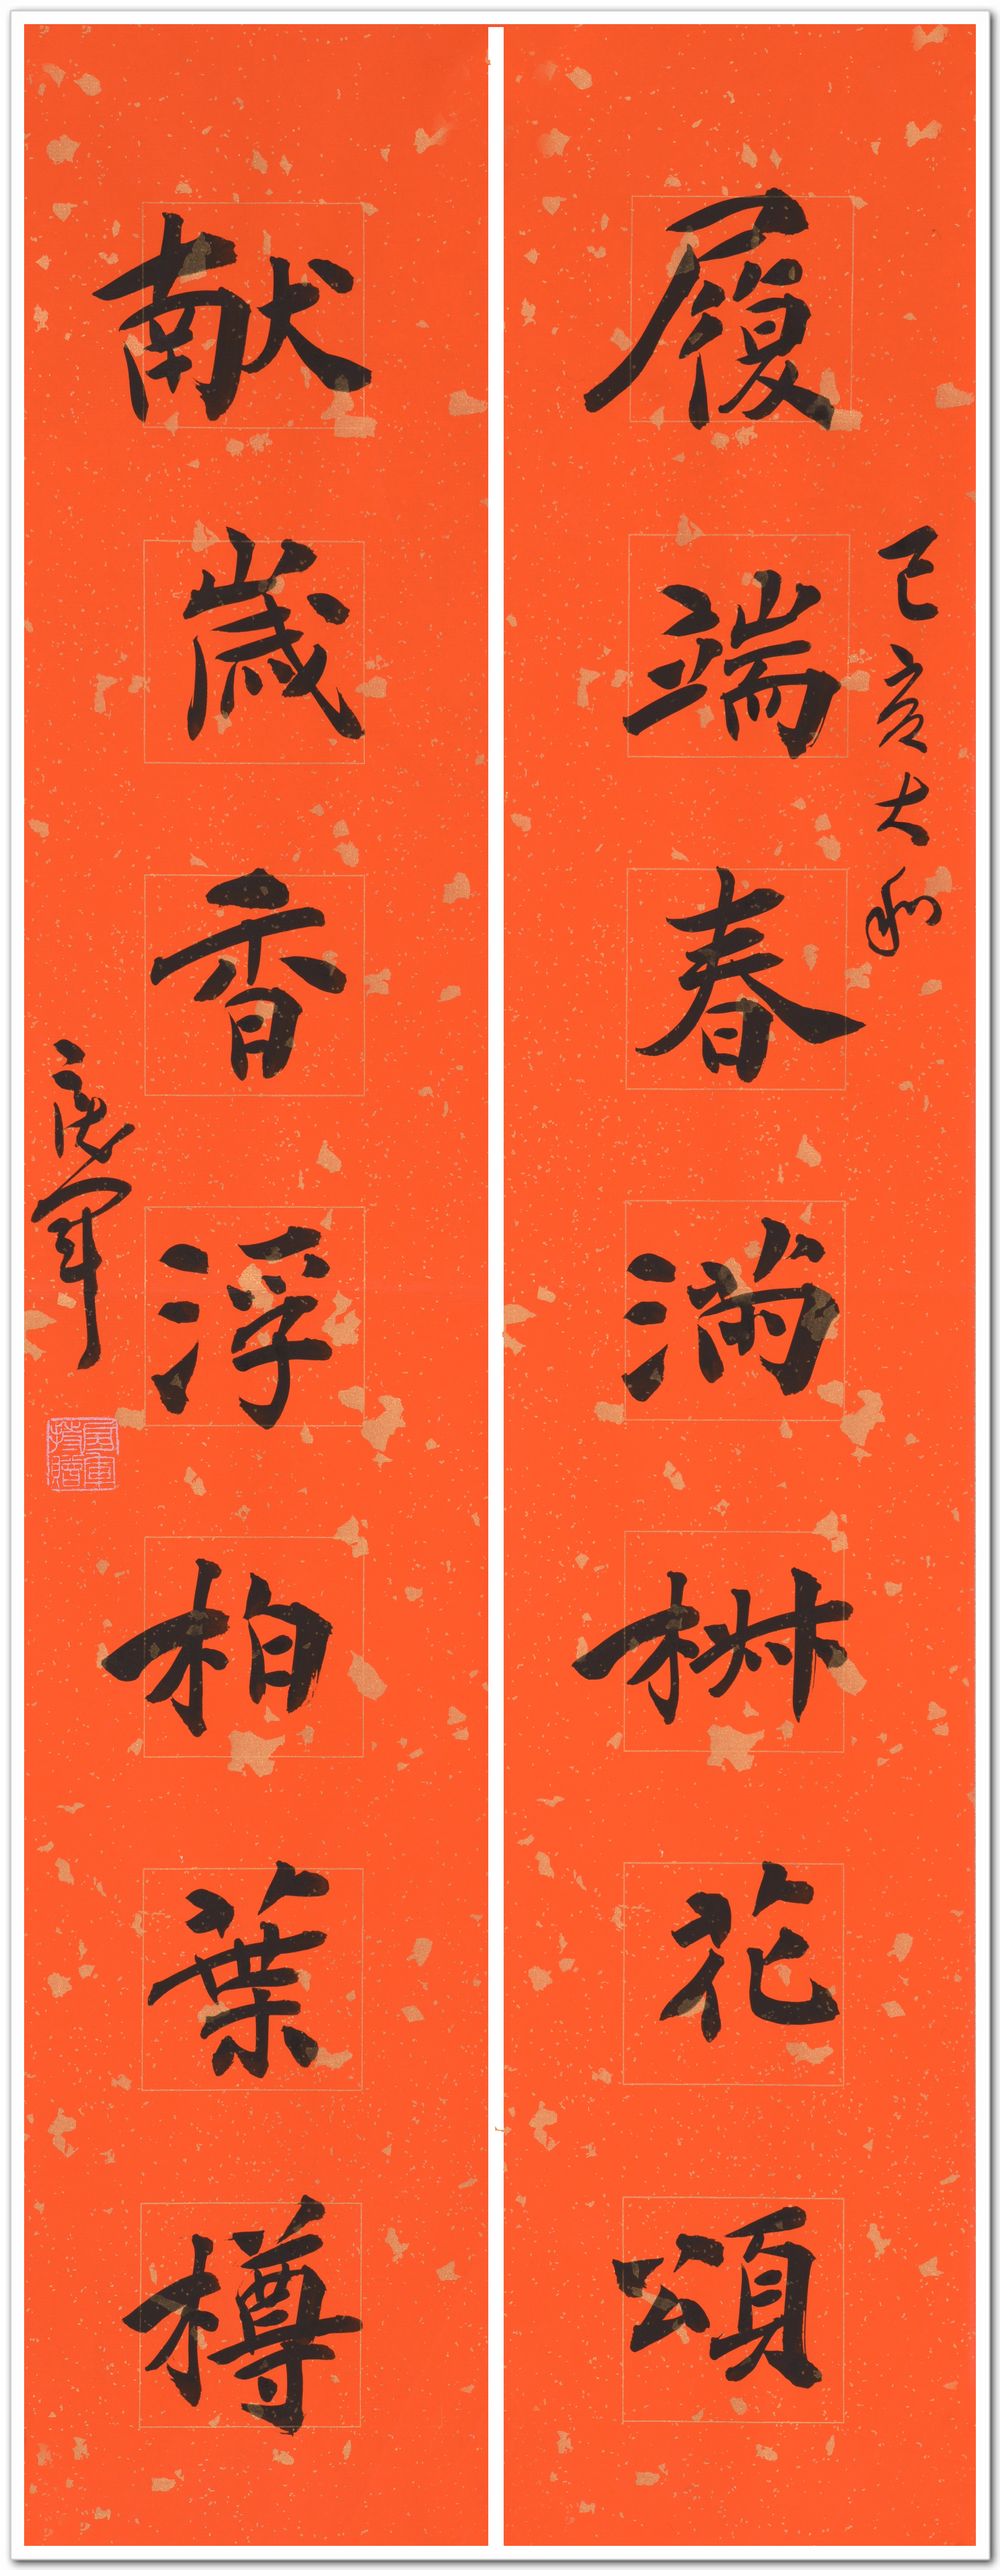 履端春滿椒花頌
己亥大利
献歲香浮柏葉樽